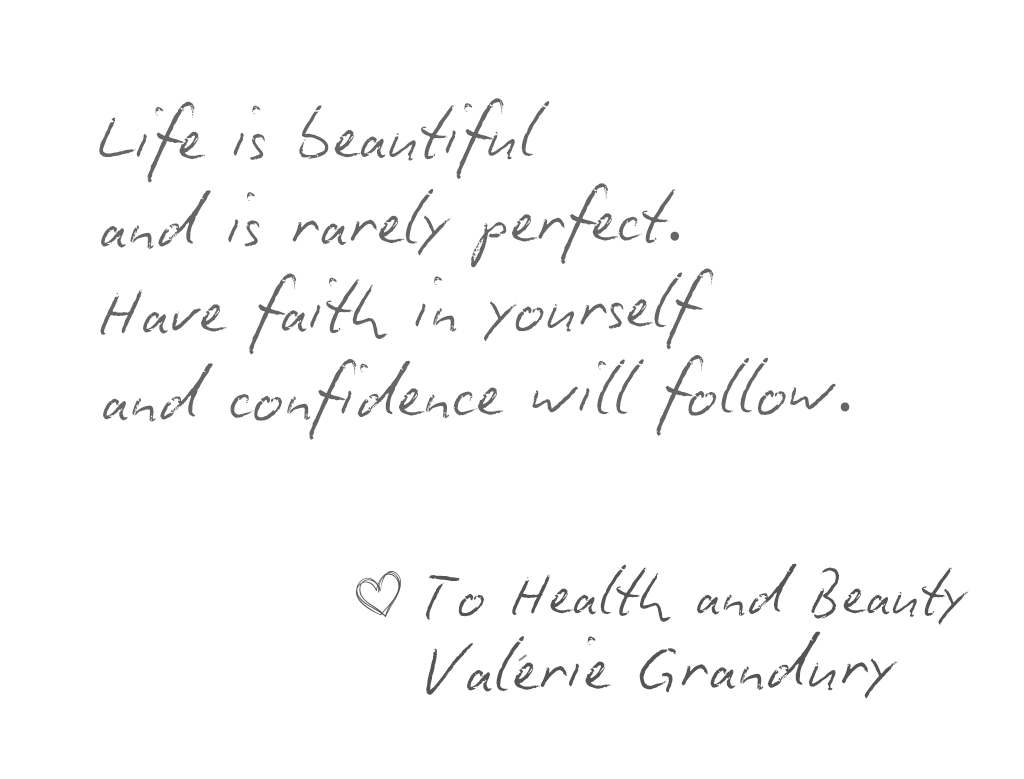 Life is beautiful
and is rarely perfect.
Have faith in yourself
and confidence will follow.
To Health and Beauty
Valérie Grandury